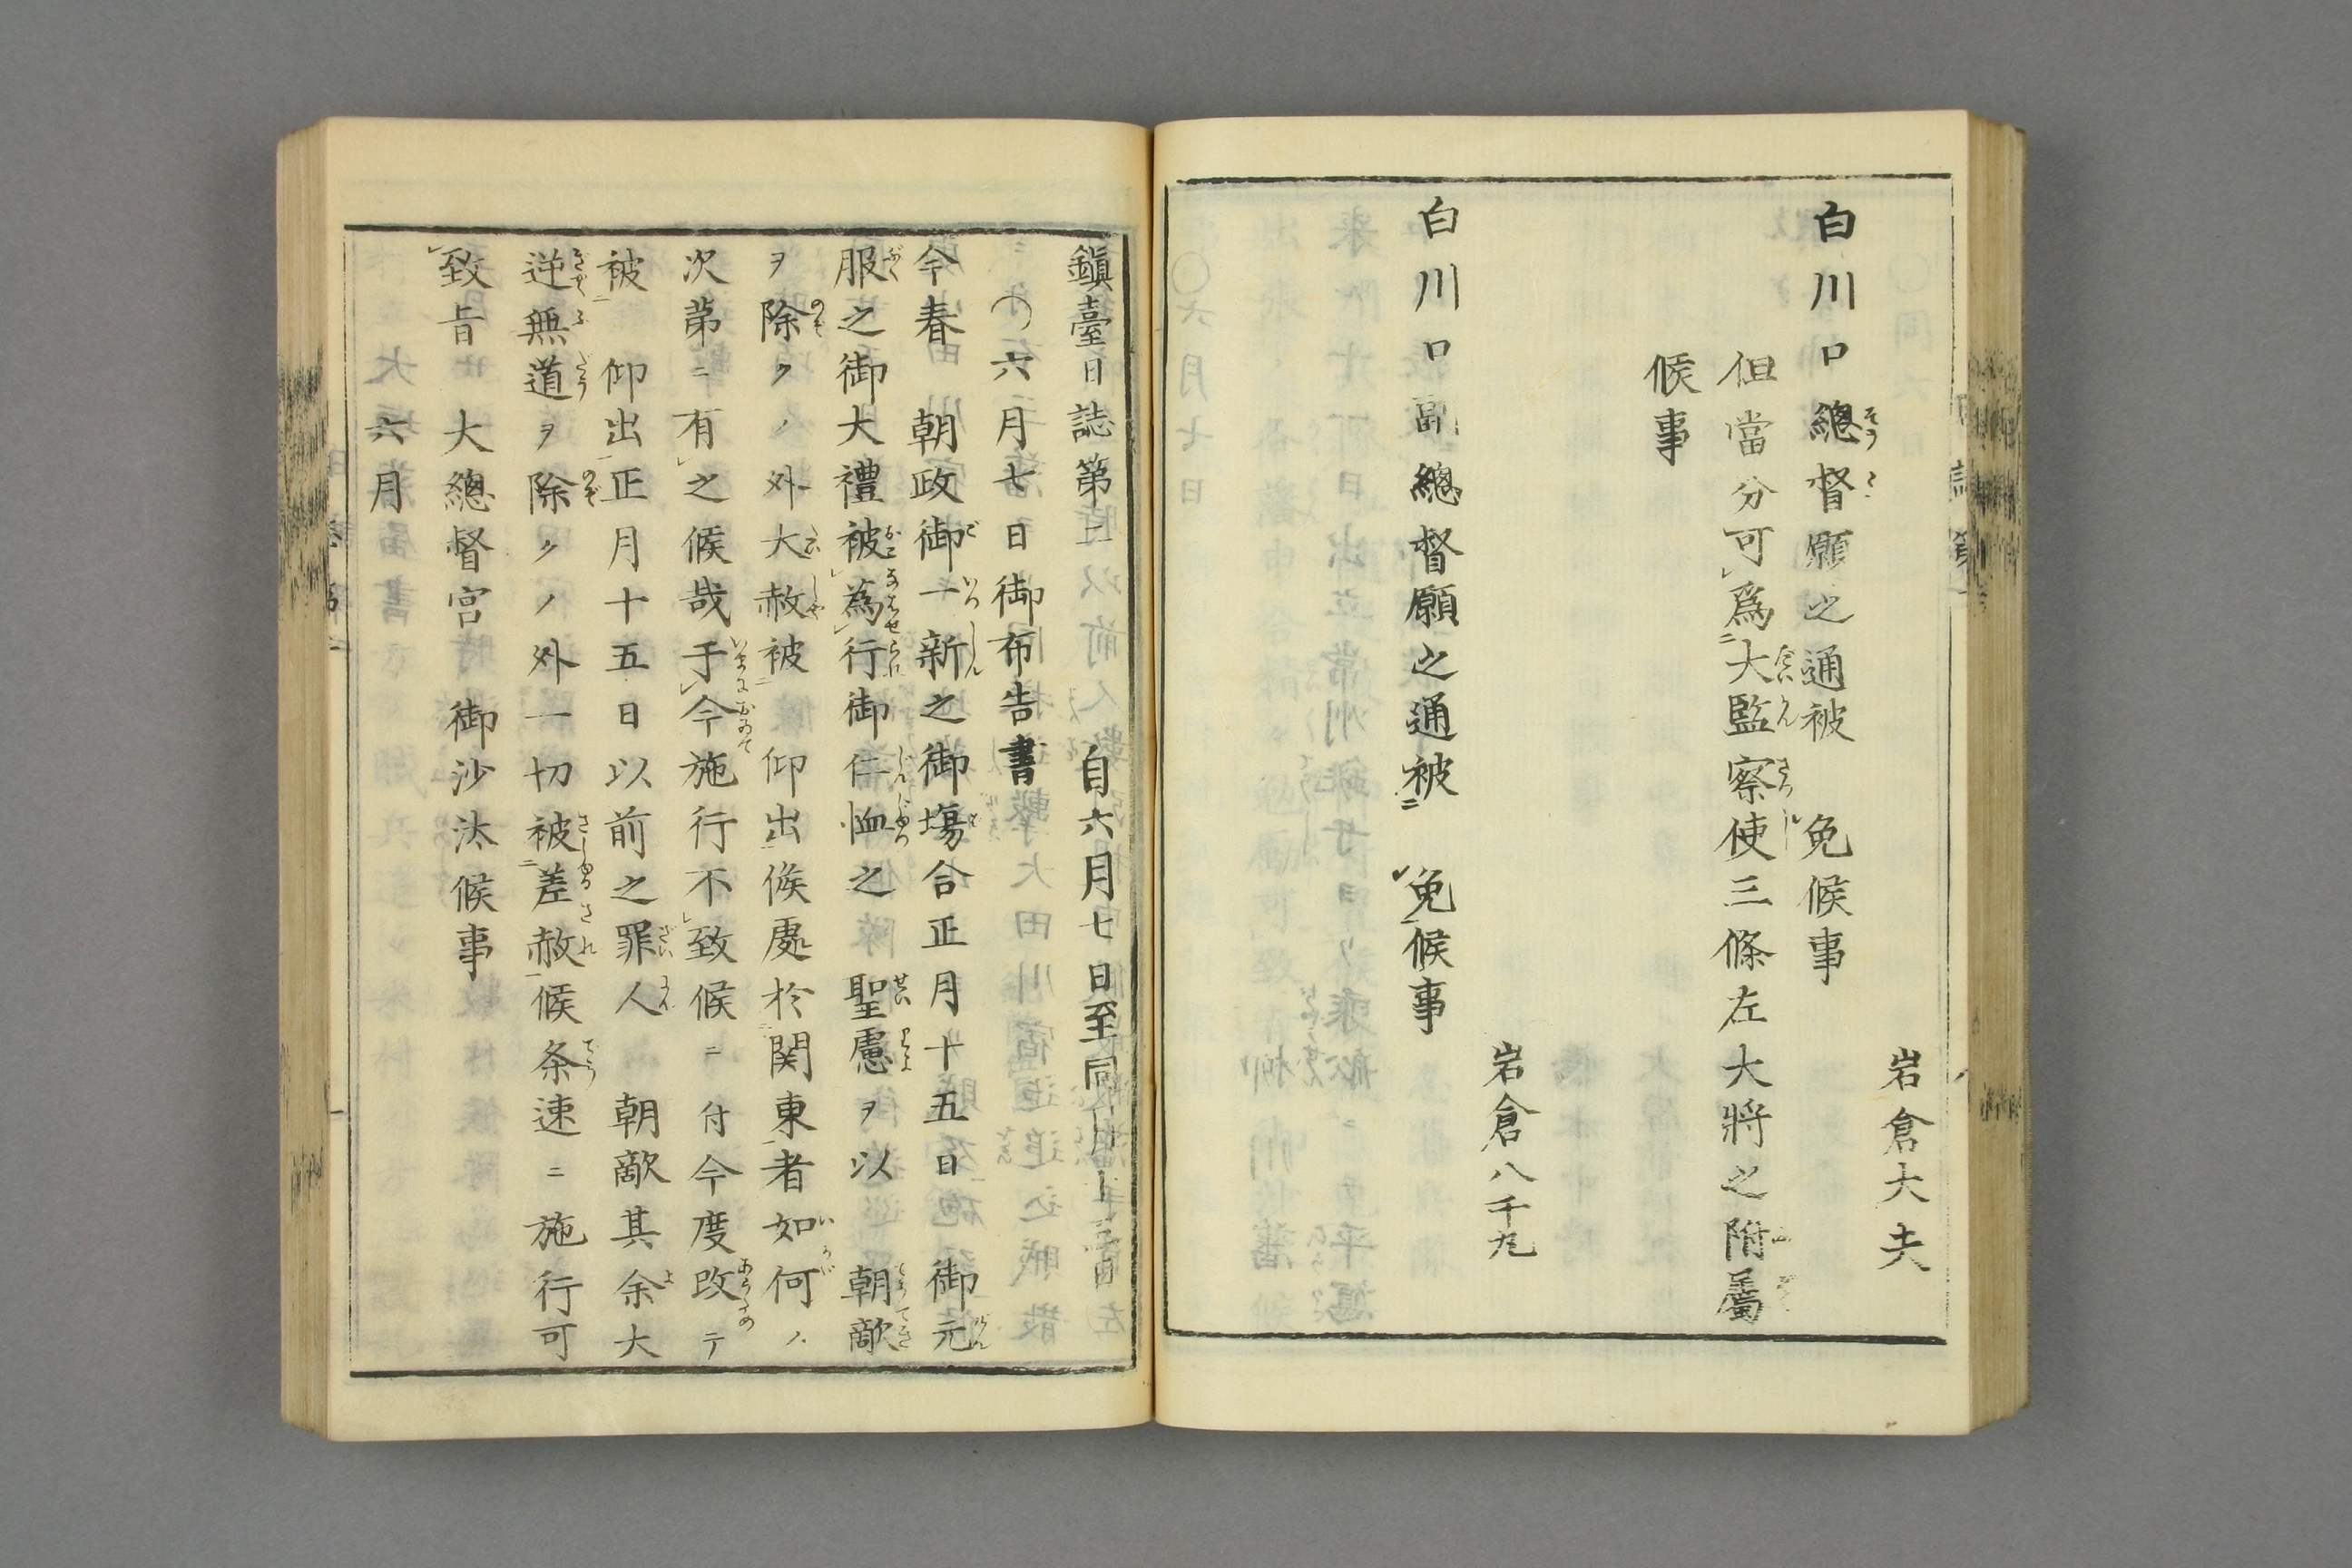 岩倉大夫
白川口總督願之通被　免候事
但當分可㆑爲㆓大監察使三條左大將之附屬
候事
岩倉八千丸
白川口副總督願之通被㆓　免㆒候事
鎭臺日誌第二　自六月七日至同
〇六月七日御布告書
今春　朝政御一新之御塲合正月十五日　御元
服之御大禮被㆑為㆑行御仁恤之　聖慮ヲ以　朝敵
ヲ除クノ外大赦被㆓　仰出㆒候處於㆓関東㆒者如何ノ
次第ニ有㆑之候哉于㆑今施行不㆑致候ニ付今度改テ
被㆓　仰出㆒正月十五日以前之罪人　朝敵其余大
逆無道ヲ除クノ外一切被㆓差赦㆒候条速ニ施行可
㆑致旨　大總督宮　御沙汰候事
六月